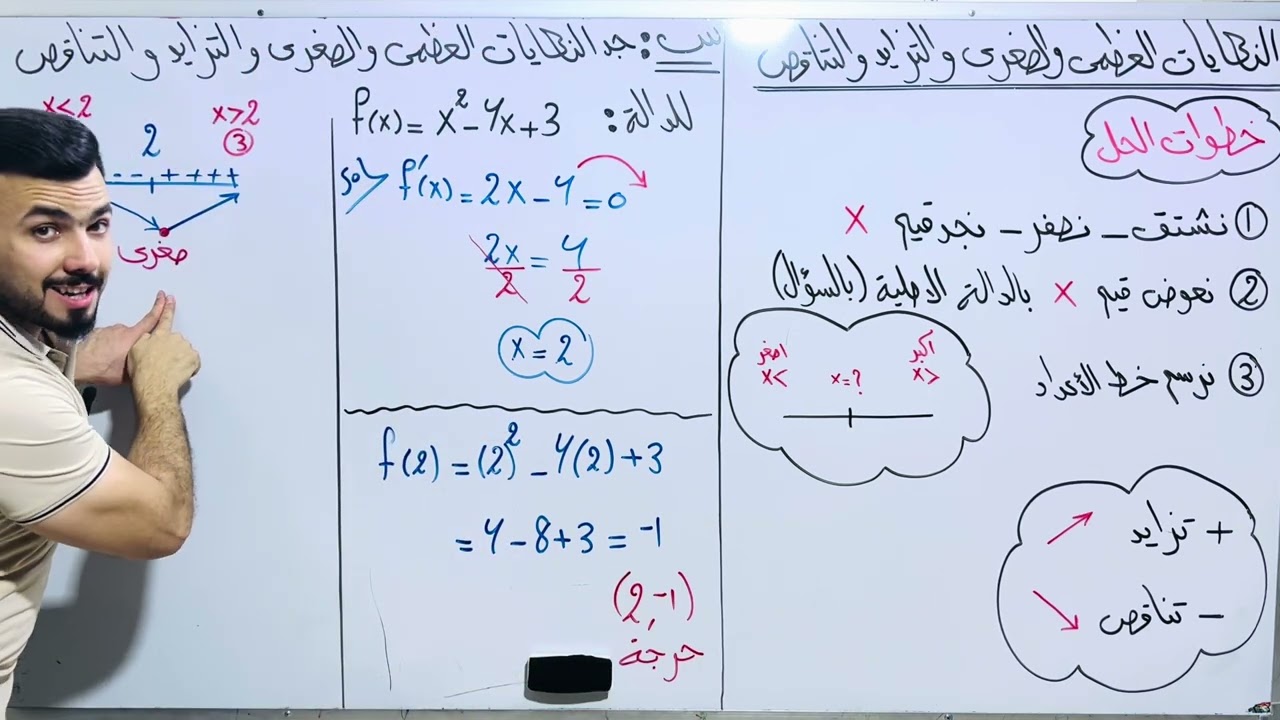 النهايات العظمى والصغرى والتزايد والتناقص
خطوات الحل
① نشتق - نصفر - نجد قيم x
② نعوض قيم x بالدالة الاصلية (بالسؤال)
③ نرسم خط الأعداد
اصغر
x<
x=?
اكبر
x>
+ تزايد
- تناقص
س: جد النهايات العظمى والصغرى والتزايد والتناقص
للدالة: f(x) = x² - 4x + 3
sol> f'(x) = 2x - 4 = 0
2x/2 = 4/2
x = 2
f(2) = (2)² - 4(2) + 3
= 4 - 8 + 3 = -1
(2, -1)
حرجة
x<2
2
x>2
③
- - + + + +
صغرى